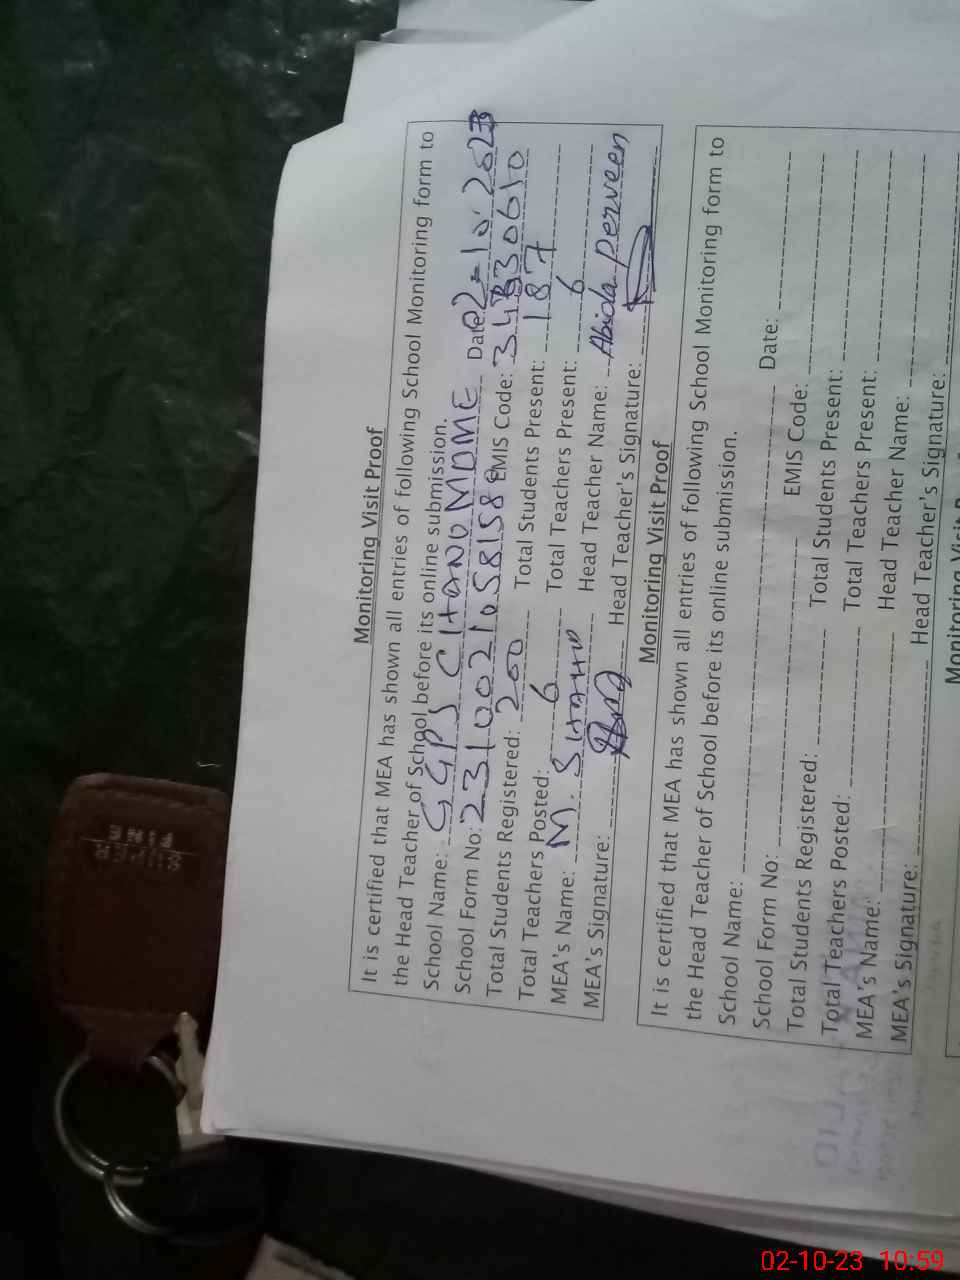 Monitoring Visit Proof
It is certified that MEA has shown all entries of following School Monitoring form to
the Head Teacher of School before its online submission.
School Name: GGPS CHANDMDME Date: 02-10-2023
School Form No: 231002105815 EMIS Code: 34330610
Total Students Registered: 200 Total Students Present: 187
Total Teachers Posted: 6 Total Teachers Present: 6
MEA's Name: M. Head Teacher Name: Abida Perveen
MEA's Signature: Head Teacher's Signature:
Monitoring Visit Proof
It is certified that MEA has shown all entries of following School Monitoring form to
the Head Teacher of School before its online submission.
School Name: Date:
School Form No: EMIS Code:
Total Students Registered: Total Students Present:
Total Teachers Posted: Total Teachers Present:
MEA's Name: Head Teacher Name:
MEA's Signature: Head Teacher's Signature:
Monitoring Visit
SUPER
FINE
02-10-23 10:59